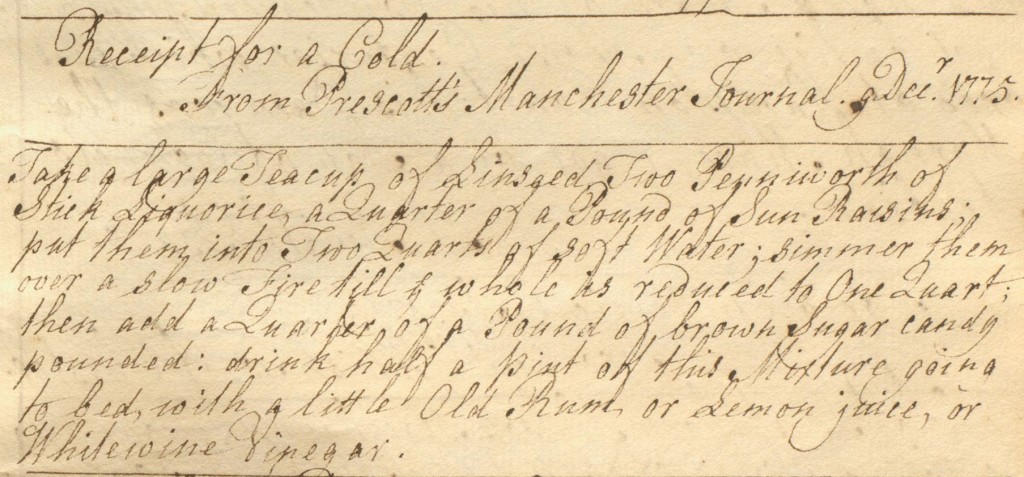 Receipt for a Cold.
From Prescott's Manchester Journal. 9 Decr. 1775.
Take a large Teacup of Linseed, Two Pennyworth of
Stick Liquorice, a Quarter of a Pound of Sun Raisins;
put them into Two Quarts of soft Water; simmer them
over a slow Fire till ye whole is reduced to One Quart;
then add a Quarter of a Pound of brown Sugar candy
pounded: drink half a pint of this Mixture going
to bed, with a little Old Rum, or Lemon juice, or
Whitewine Vinegar.